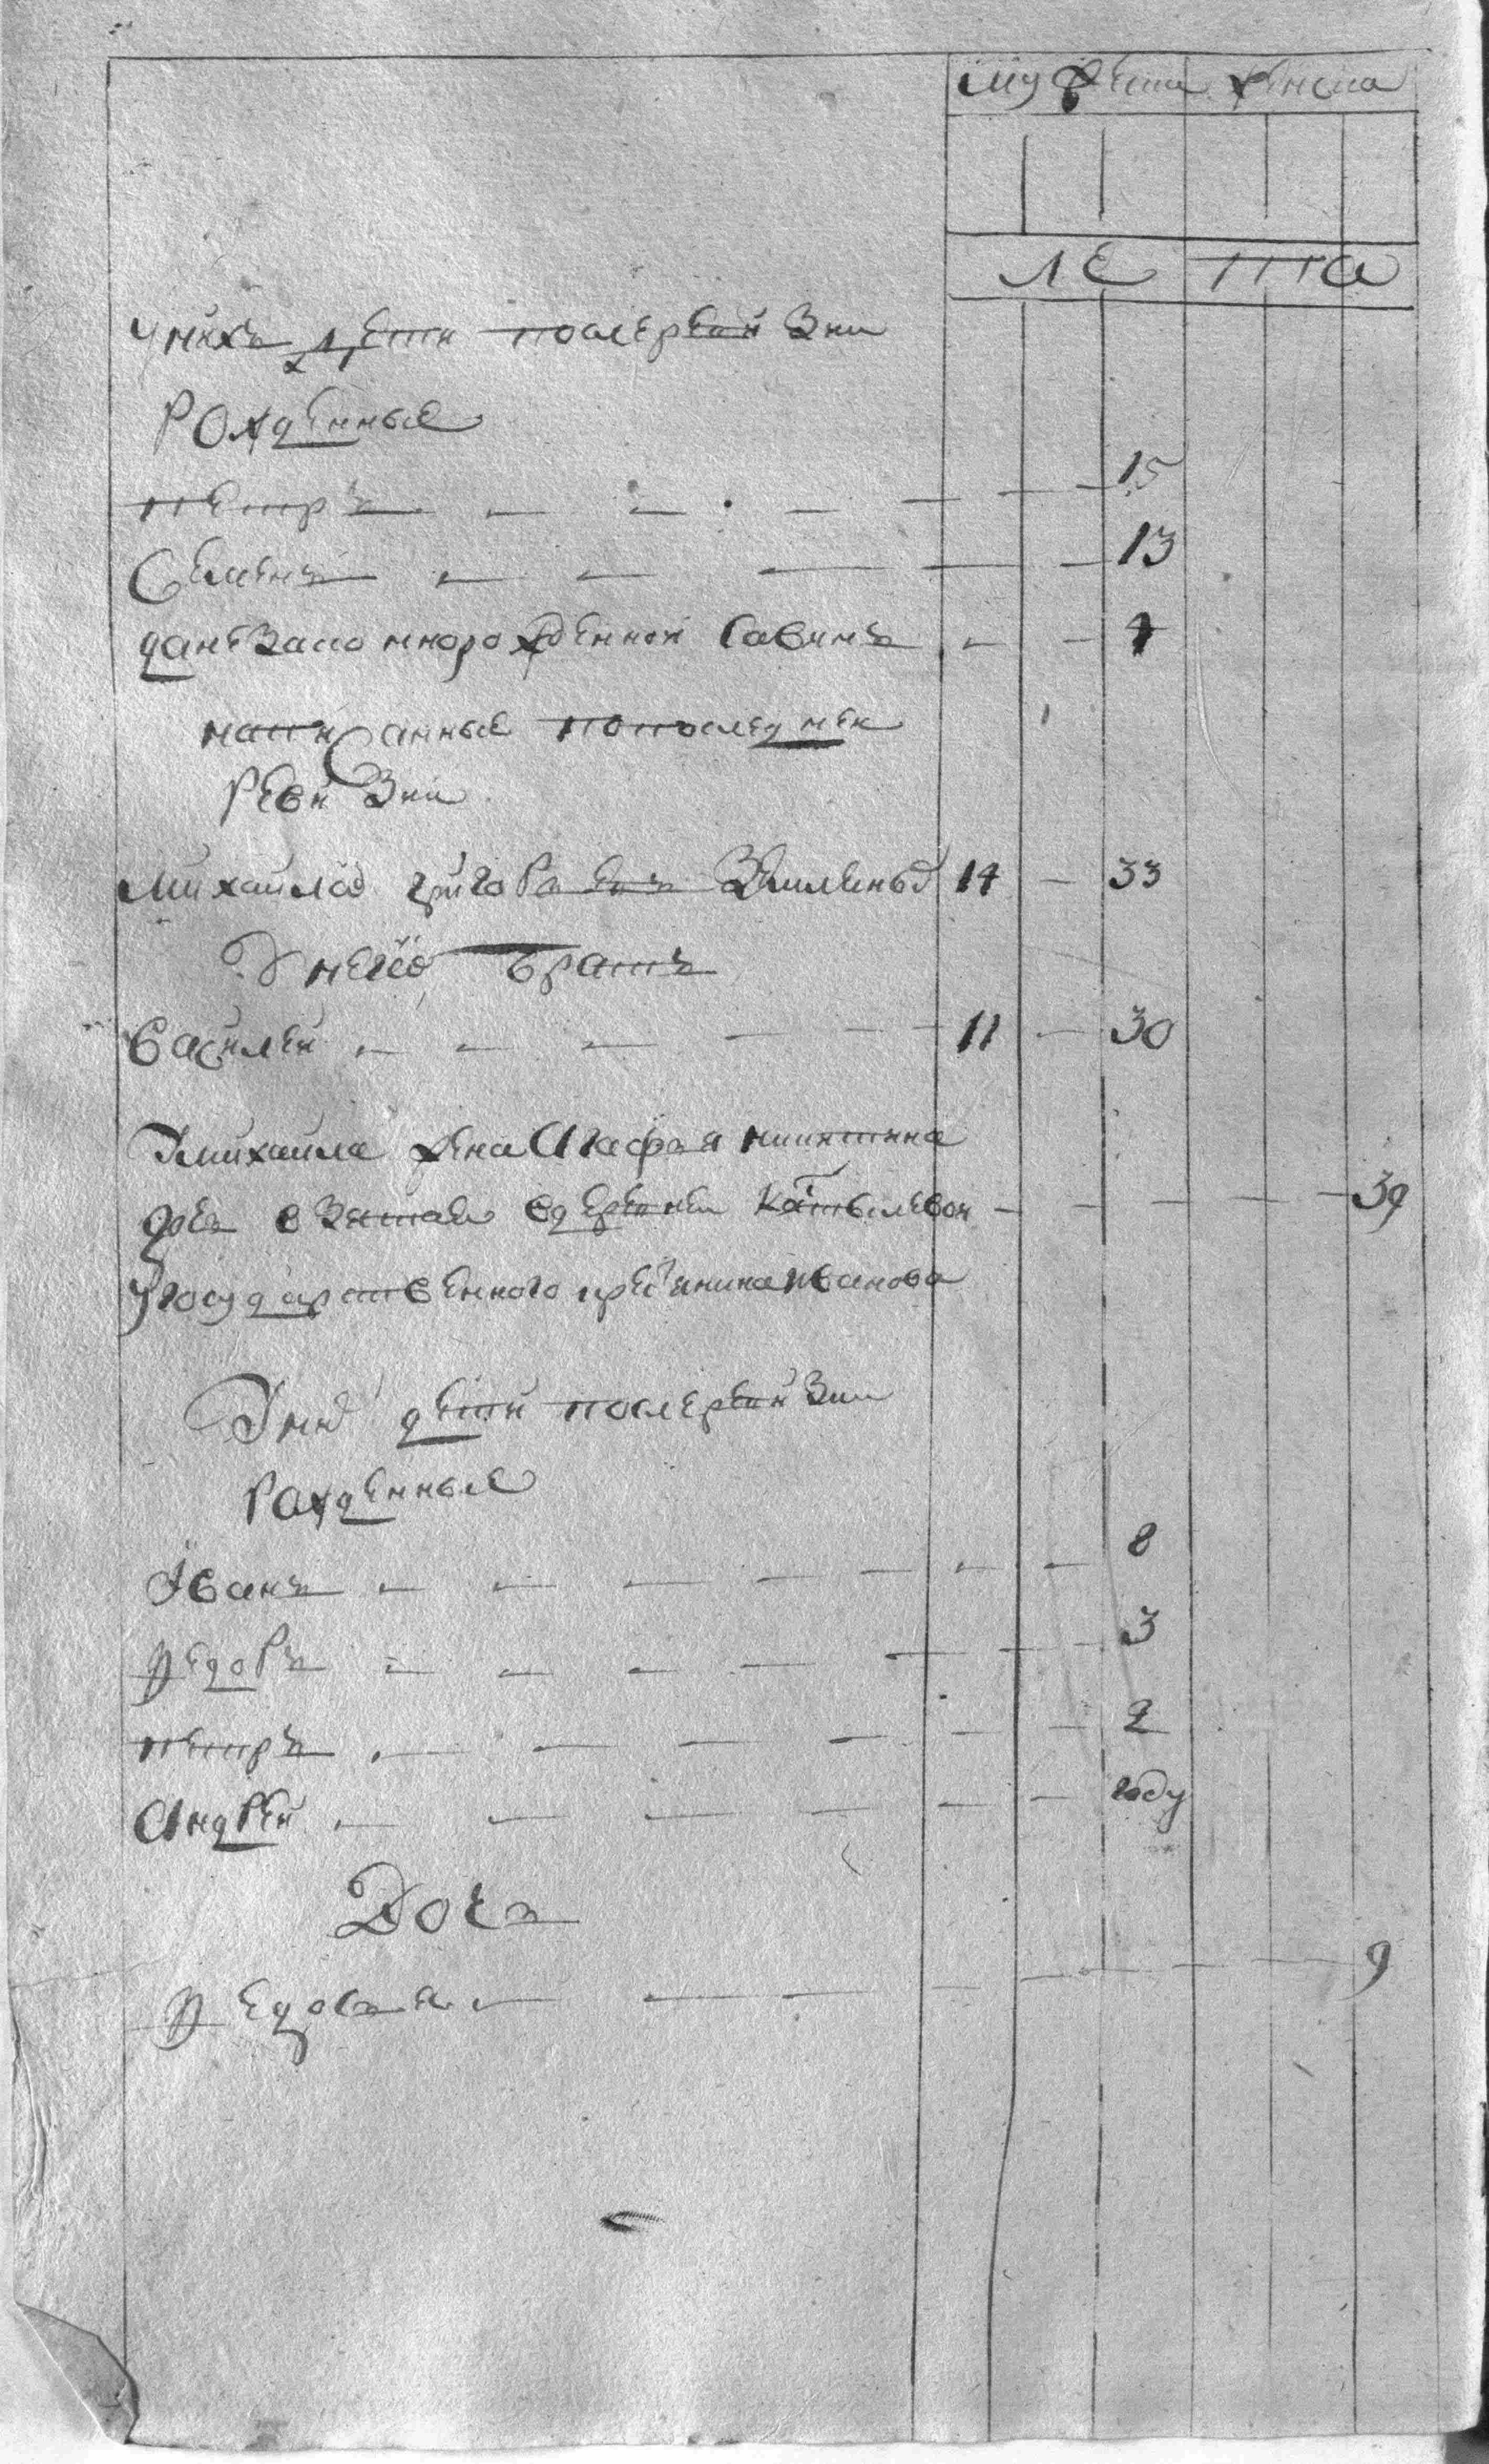 мужеска женска
ле та
у них дети после ревизии
рожденные
петръ 15
Семенъ 13
да незаконнорожденной Савинъ 7
написанные по последней
ревизии
Михаила григорьевъ 14 33
У него братъ
василей 11 30
У михаила жена Агафья никитина
дочь взятая в деревни
у государственного крестьянина иванова 39
У них дети после ревизии
рожденные
Иванъ 8
федоръ 3
петръ 2
Андрей году
Дочь
федосья 9